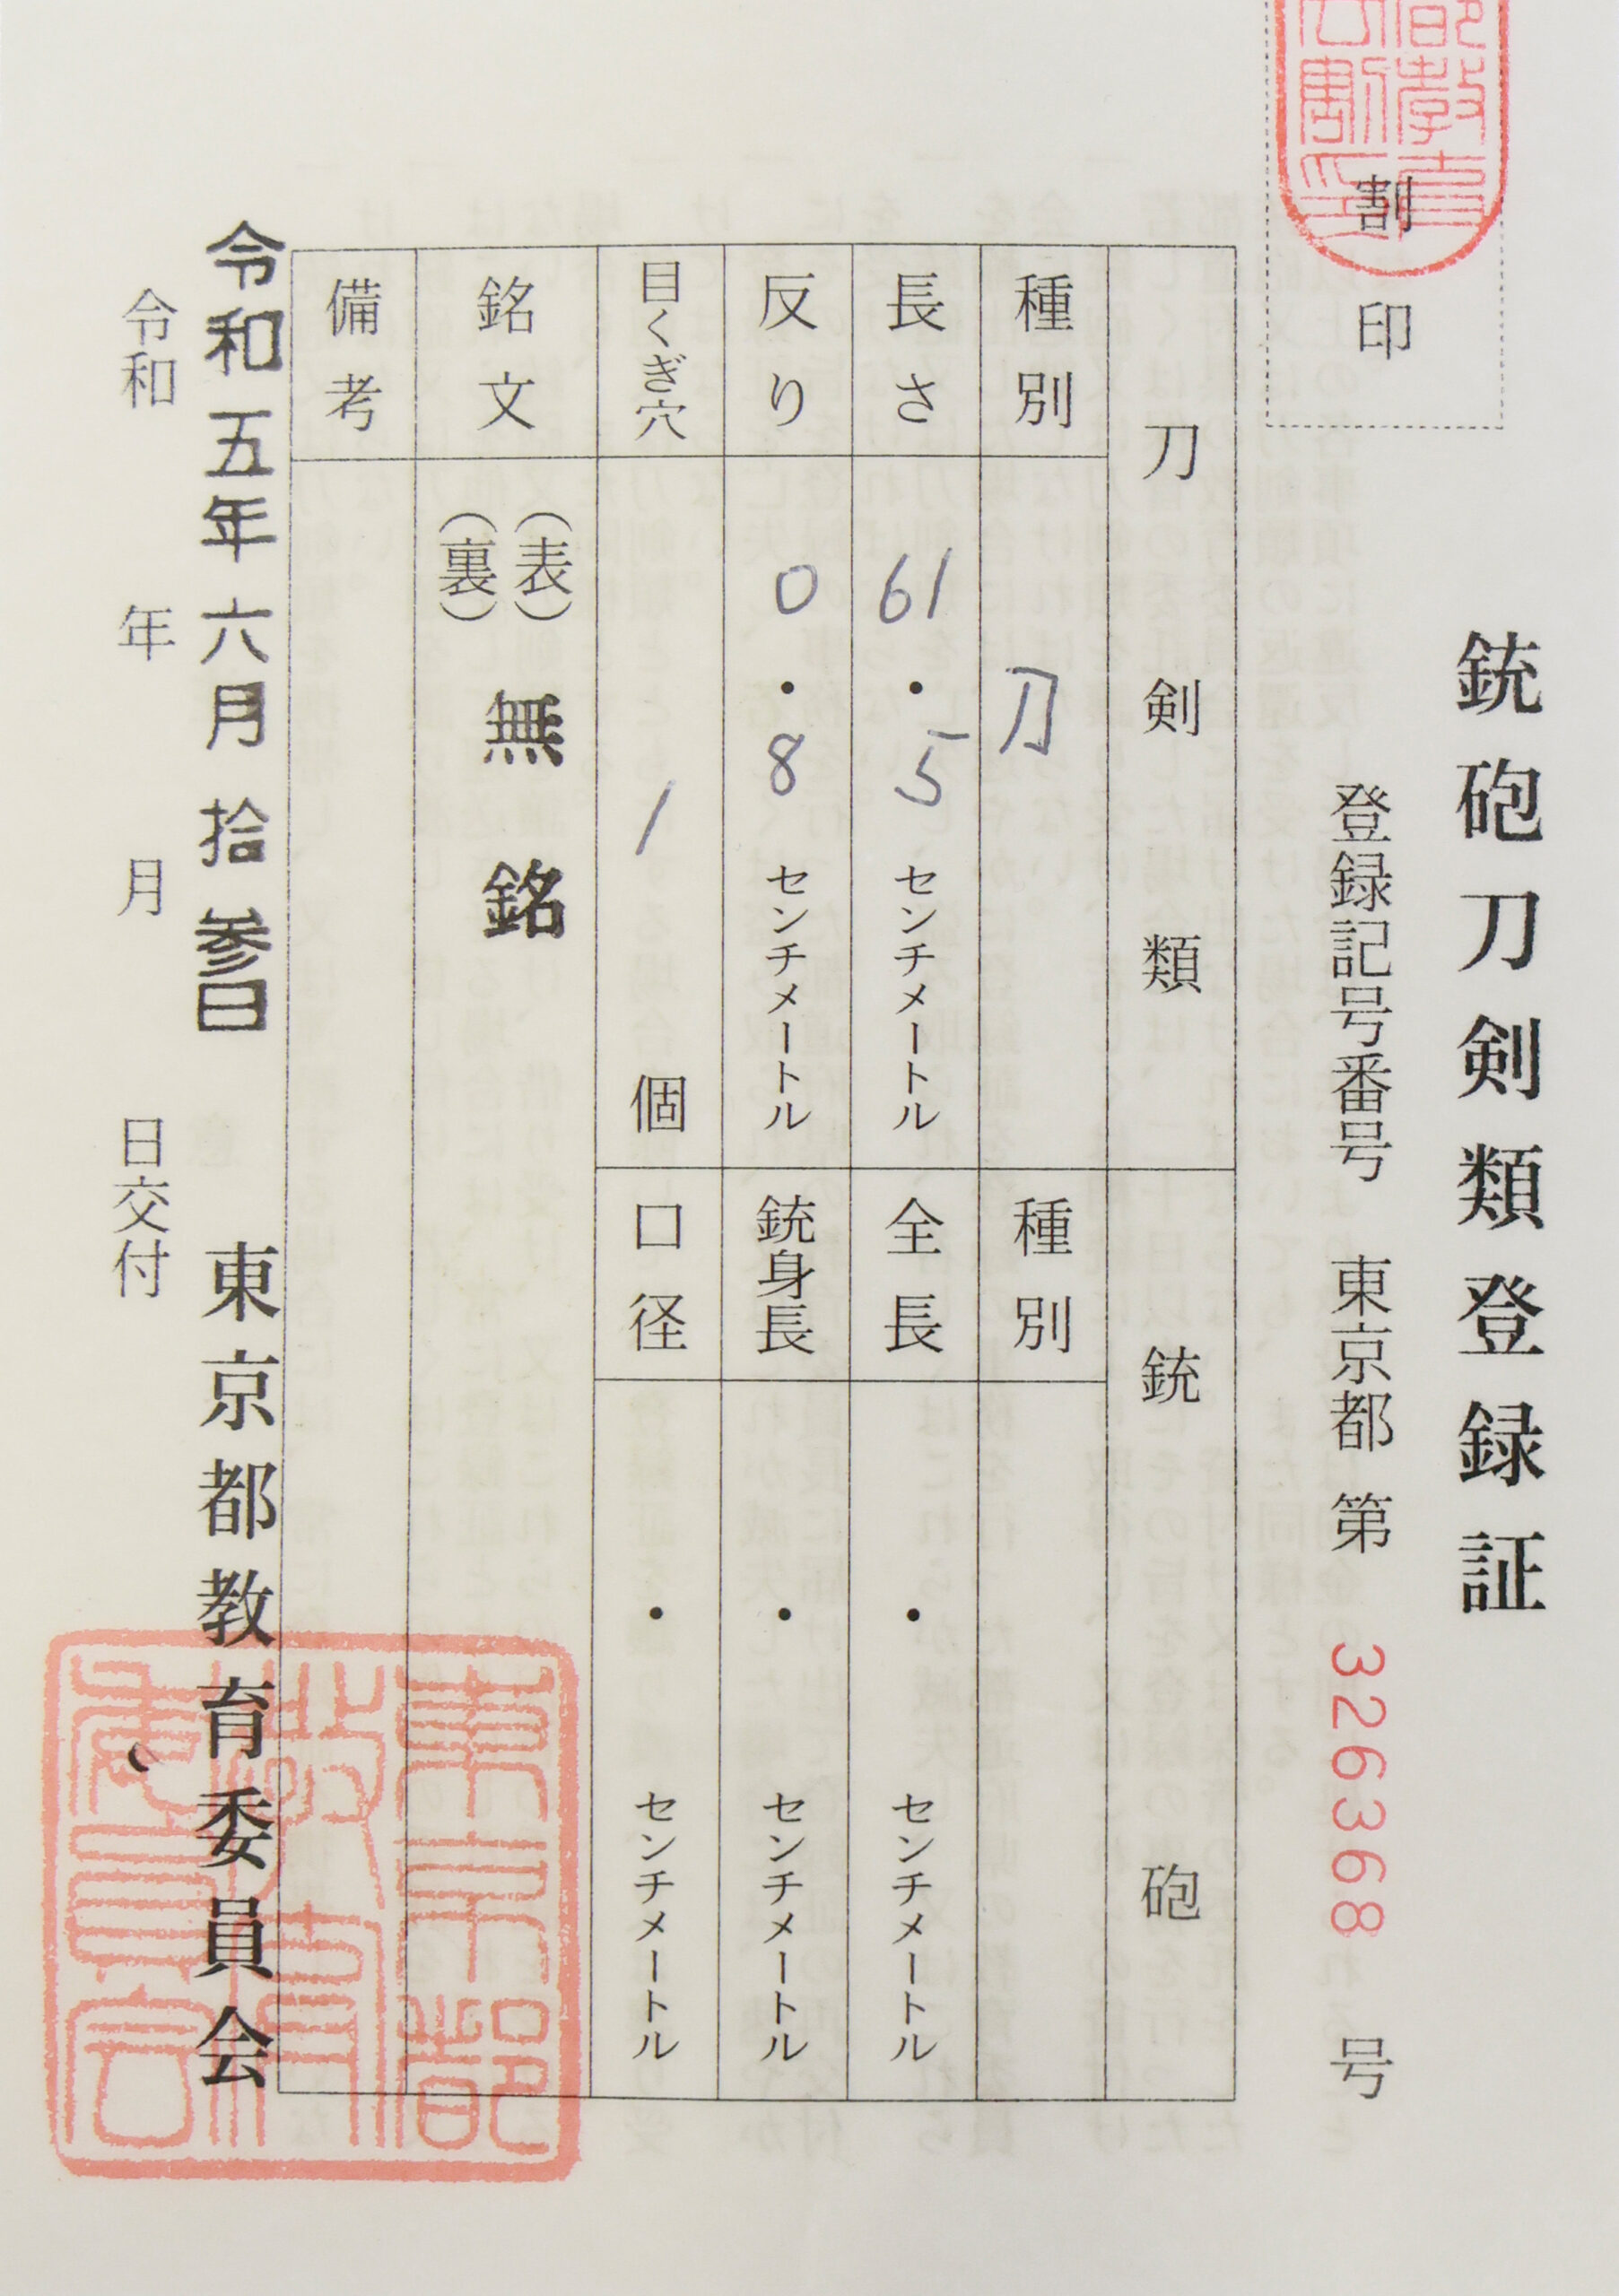 銃砲刀剣類登録証
割印
登録記号番号 東京都 第 326368 号
刀剣類
銃砲
種別 刀
長さ 61・5 センチメートル
反り 0・8 センチメートル
目くぎ穴 1 個
種別
全長 ・ センチメートル
銃身長 ・ センチメートル
口径 ・ センチメートル
銘文 (表) 無銘
(裏)
備考
令和五年六月拾参日
東京都教育委員会
令和 年 月 日交付
東京都教育委員会